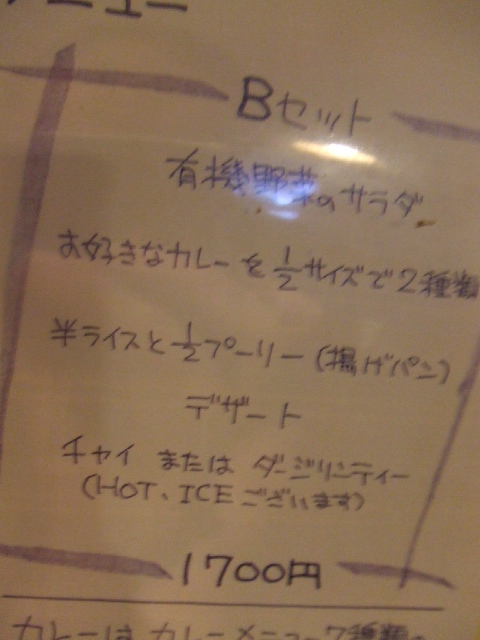 メニュー
Bセット
有機野菜のサラダ
お好きなカレーを1/2サイズで2種類
半ライスと1/2プーリー(揚げパン)
デザート
チャイ または ダージリンティー
(HOT、ICEございます)
1700円
カレーは カレーメニュー7種類